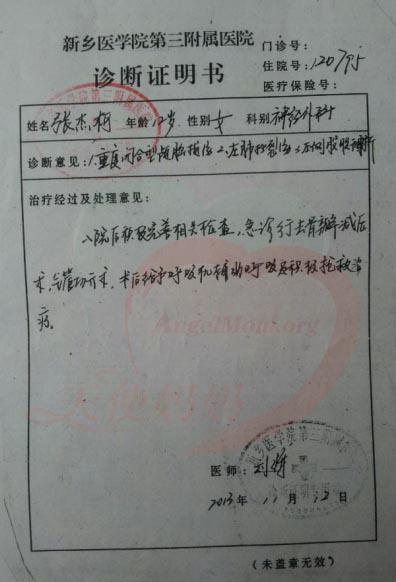 新乡医学院第三附属医院
门诊号：
住院号：120795
诊断证明书
医疗保险号：
姓名 张杰 年龄 12岁 性别 女 科别 神经外科
诊断意见：1.重度闭合型颅脑损伤 2.左肺挫裂伤 3.右
治疗经过及处理意见：
入院后积极完善相关检查，急诊行去骨瓣减压
术，气管切开术，术后给予呼吸机辅助呼吸及积极抢救治
疗。
AngelMom.org
天使妈妈
医师：刘
新乡医学院第三附属
2013年 11月 12日
（未盖章无效）